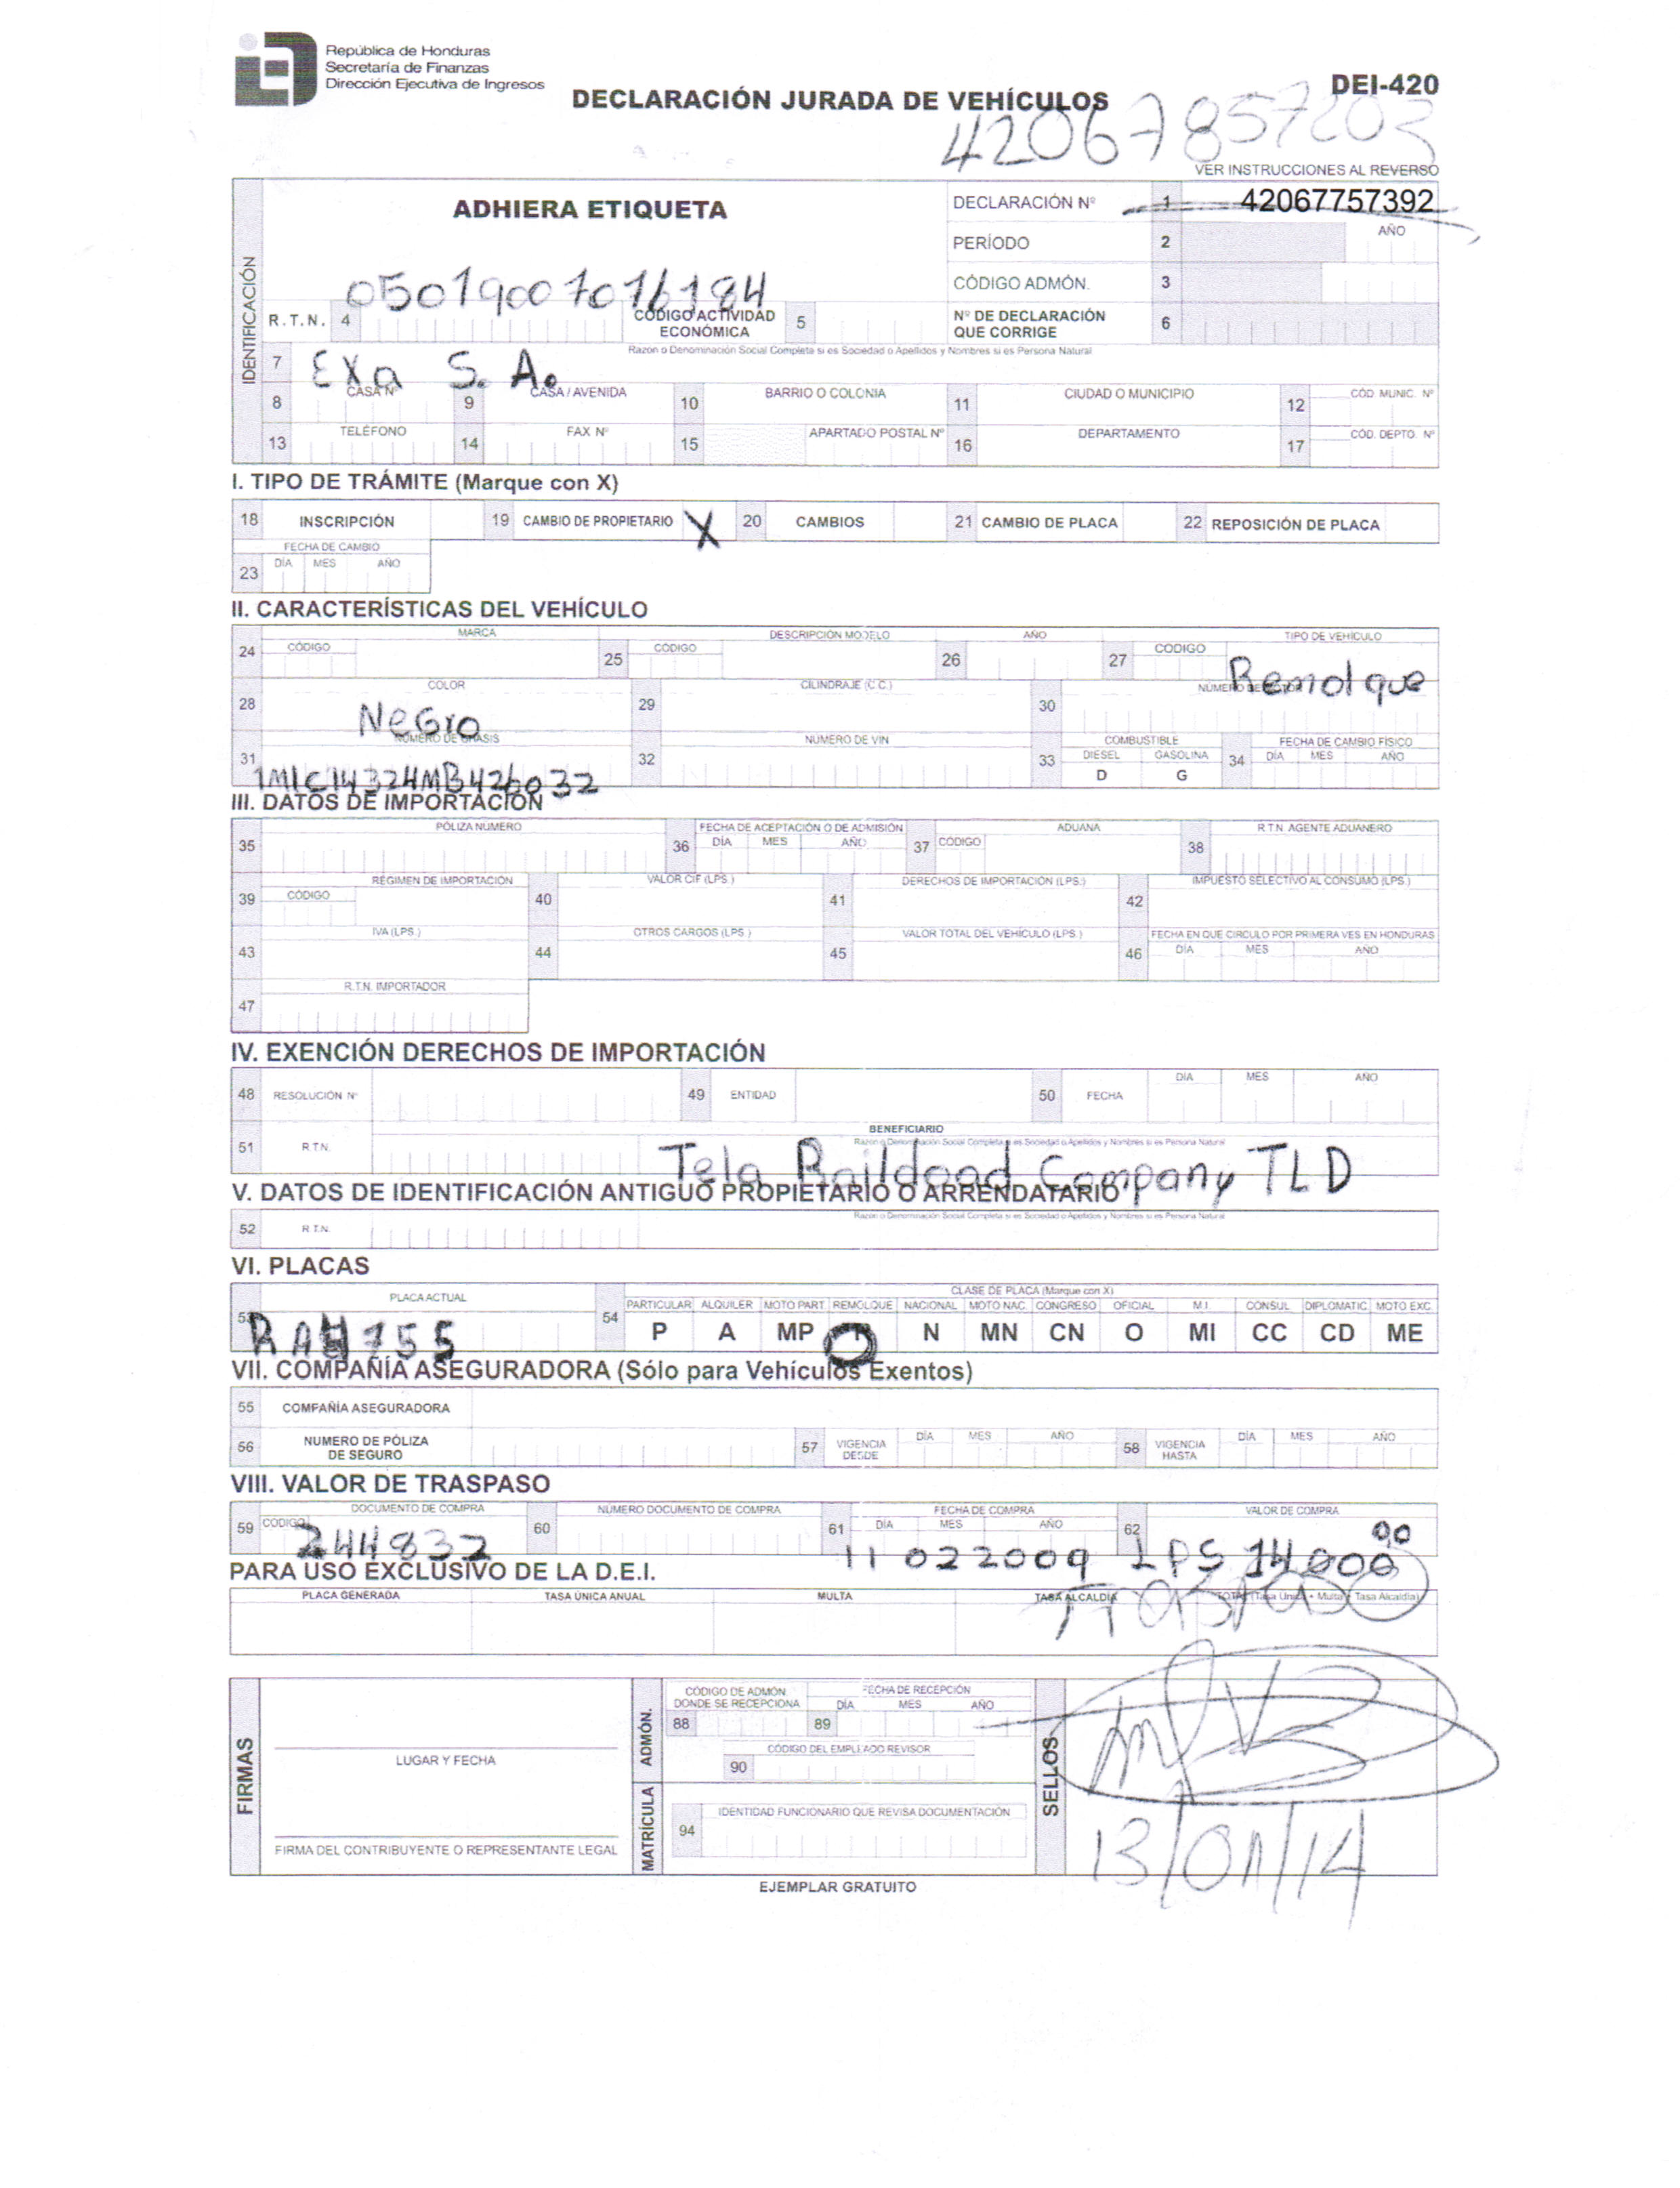 República de Honduras
Secretaría de Finanzas
Dirección Ejecutiva de Ingresos
DEI-420
DECLARACIÓN JURADA DE VEHÍCULOS
42067857203
VER INSTRUCCIONES AL REVERSO
IDENTIFICACIÓN
ADHIERA ETIQUETA
DECLARACIÓN Nº 1 42067757392
PERÍODO 2 AÑO
CÓDIGO ADMÓN. 3
05019007076184
R.T.N. 4 CÓDIGO ACTIVIDAD ECONÓMICA 5 Nº DE DECLARACIÓN QUE CORRIGE 6
7 Razon o Denominación Social Completa si es Sociedad o Apellidos y Nombres si es Persona Natural
EXa S. A.
8 CASA Nº 9 CASA / AVENIDA 10 BARRIO O COLONIA 11 CIUDAD O MUNICIPIO 12 CÓD. MUNIC. Nº
13 TELÉFONO 14 FAX Nº 15 APARTADO POSTAL Nº 16 DEPARTAMENTO 17 CÓD. DEPTO. Nº
I. TIPO DE TRÁMITE (Marque con X)
18 INSCRIPCIÓN 19 CAMBIO DE PROPIETARIO X 20 CAMBIOS 21 CAMBIO DE PLACA 22 REPOSICIÓN DE PLACA
FECHA DE CAMBIO
23 DÍA MES AÑO
II. CARACTERÍSTICAS DEL VEHÍCULO
24 CÓDIGO MARCA 25 CÓDIGO DESCRIPCIÓN MODELO 26 AÑO 27 CODIGO TIPO DE VEHÍCULO
Remolque
28 COLOR 29 CILINDRAJE (C.C.) 30 NÚMERO DE MOTOR
NeGro
31 NÚMERO DE CHASIS 32 NÚMERO DE VIN 33 COMBUSTIBLE DIESEL D GASOLINA G 34 FECHA DE CAMBIO FÍSICO DÍA MES AÑO
1M1C14324MB426032
III. DATOS DE IMPORTACIÓN
35 PÓLIZA NUMERO 36 FECHA DE ACEPTACIÓN O DE ADMISIÓN DÍA MES AÑO 37 CÓDIGO ADUANA 38 R.T.N. AGENTE ADUANERO
39 CÓDIGO RÉGIMEN DE IMPORTACIÓN 40 VALOR CIF (LPS.) 41 DERECHOS DE IMPORTACIÓN (LPS.) 42 IMPUESTO SELECTIVO AL CONSUMO (LPS.)
43 IVA (LPS.) 44 OTROS CARGOS (LPS.) 45 VALOR TOTAL DEL VEHÍCULO (LPS.) 46 FECHA EN QUE CIRCULO POR PRIMERA VES EN HONDURAS DÍA MES AÑO
47 R.T.N. IMPORTADOR
IV. EXENCIÓN DERECHOS DE IMPORTACIÓN
48 RESOLUCIÓN Nº 49 ENTIDAD 50 FECHA DÍA MES AÑO
BENEFICIARIO
51 R.T.N. Razon o Denominación Social Completa si es Sociedad o Apellidos y Nombres si es Persona Natural
Tela Raildoad Company TLD
V. DATOS DE IDENTIFICACIÓN ANTIGUO PROPIETARIO O ARRENDATARIO
52 R.T.N. Razon o Denominación Social Completa si es Sociedad o Apellidos y Nombres si es Persona Natural
VI. PLACAS
53 PLACA ACTUAL 54 CLASE DE PLACA (Marque con X)
PARTICULAR ALQUILER MOTO PART. REMOLQUE NACIONAL MOTO NAC. CONGRESO OFICIAL M.I. CONSUL DIPLOMATIC. MOTO EXC.
RAH755 P A MP N MN CN O MI CC CD ME
VII. COMPAÑÍA ASEGURADORA (Sólo para Vehículos Exentos)
55 COMPAÑÍA ASEGURADORA
56 NUMERO DE PÓLIZA DE SEGURO 57 VIGENCIA DESDE DÍA MES AÑO 58 VIGENCIA HASTA DÍA MES AÑO
VIII. VALOR DE TRASPASO
59 CODIGO DOCUMENTO DE COMPRA 60 NÚMERO DOCUMENTO DE COMPRA 61 FECHA DE COMPRA DÍA MES AÑO 62 VALOR DE COMPRA
244832 11 02 2009 LPS 14,000.00
PARA USO EXCLUSIVO DE LA D.E.I.
PLACA GENERADA TASA ÚNICA ANUAL MULTA TASA ALCALDÍA TOTAL (Tasa Unica + Multa + Tasa Alcaldía)
FIRMAS
LUGAR Y FECHA
FIRMA DEL CONTRIBUYENTE O REPRESENTANTE LEGAL
MATRÍCULA ADMÓN.
CÓDIGO DE ADMÓN. DONDE SE RECEPCIONA FECHA DE RECEPCIÓN
88 89 DÍA MES AÑO
CÓDIGO DEL EMPLEADO REVISOR
90
IDENTIDAD FUNCIONARIO QUE REVISA DOCUMENTACIÓN
94
SELLOS
13/01/14
EJEMPLAR GRATUITO